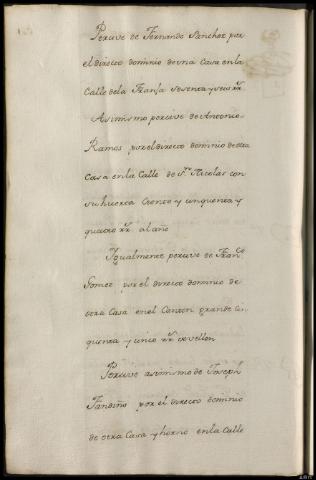 Percive de Fernando Sanchez por
el directo dominio de vna Casa en la
Calle dela Franja sesenta y seis rr.
Asimismo percive de Antonio
Ramos por el directo dominio de otra
Casa en la Calle de Sn. Nicolas con
su huerta Ciento y cinquenta y
quatro rr. al año
Igualmente percive de Franco
Gomez por el directo dominio de
otra Casa en el Canton grande cin
quenta y cinco rr. de vellon
Percive asimismo de Joseph
Fandiño por el directo dominio
de otra Casa y horno en la Calle